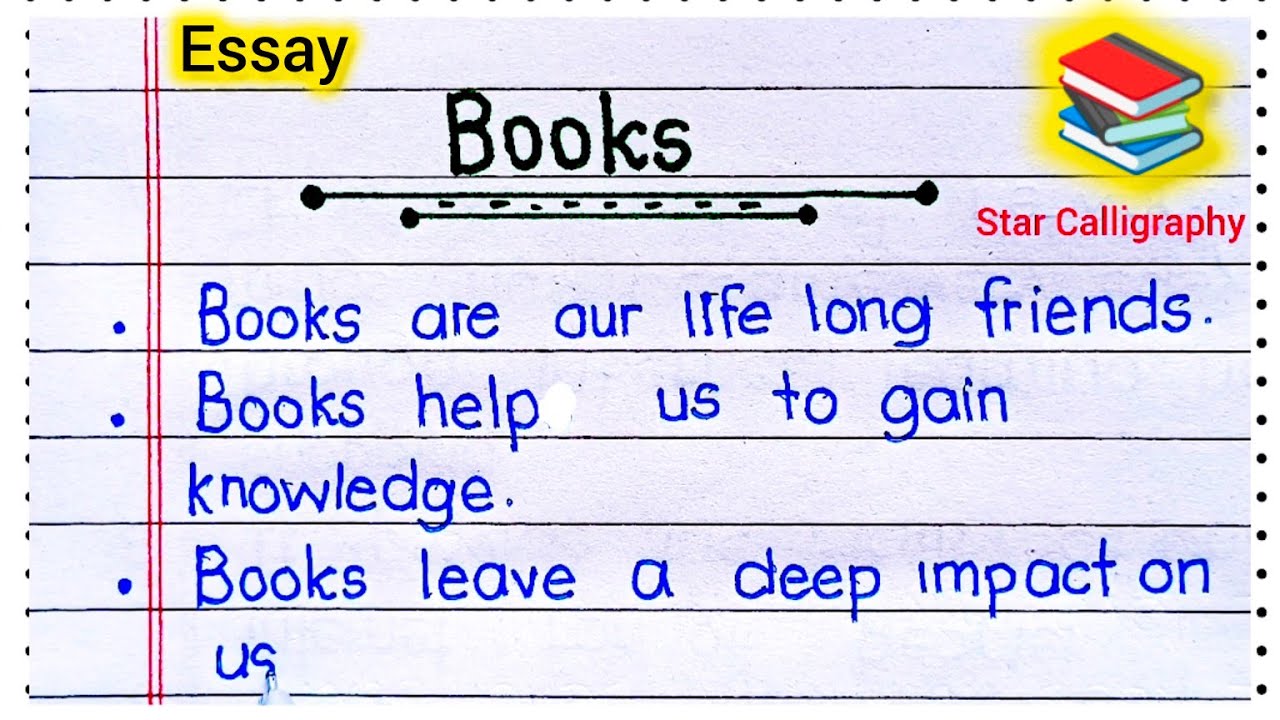 Essay
Books
Star Calligraphy
. Books are our life long friends.
. Books help us to gain
knowledge.
. Books leave a deep impact on
us